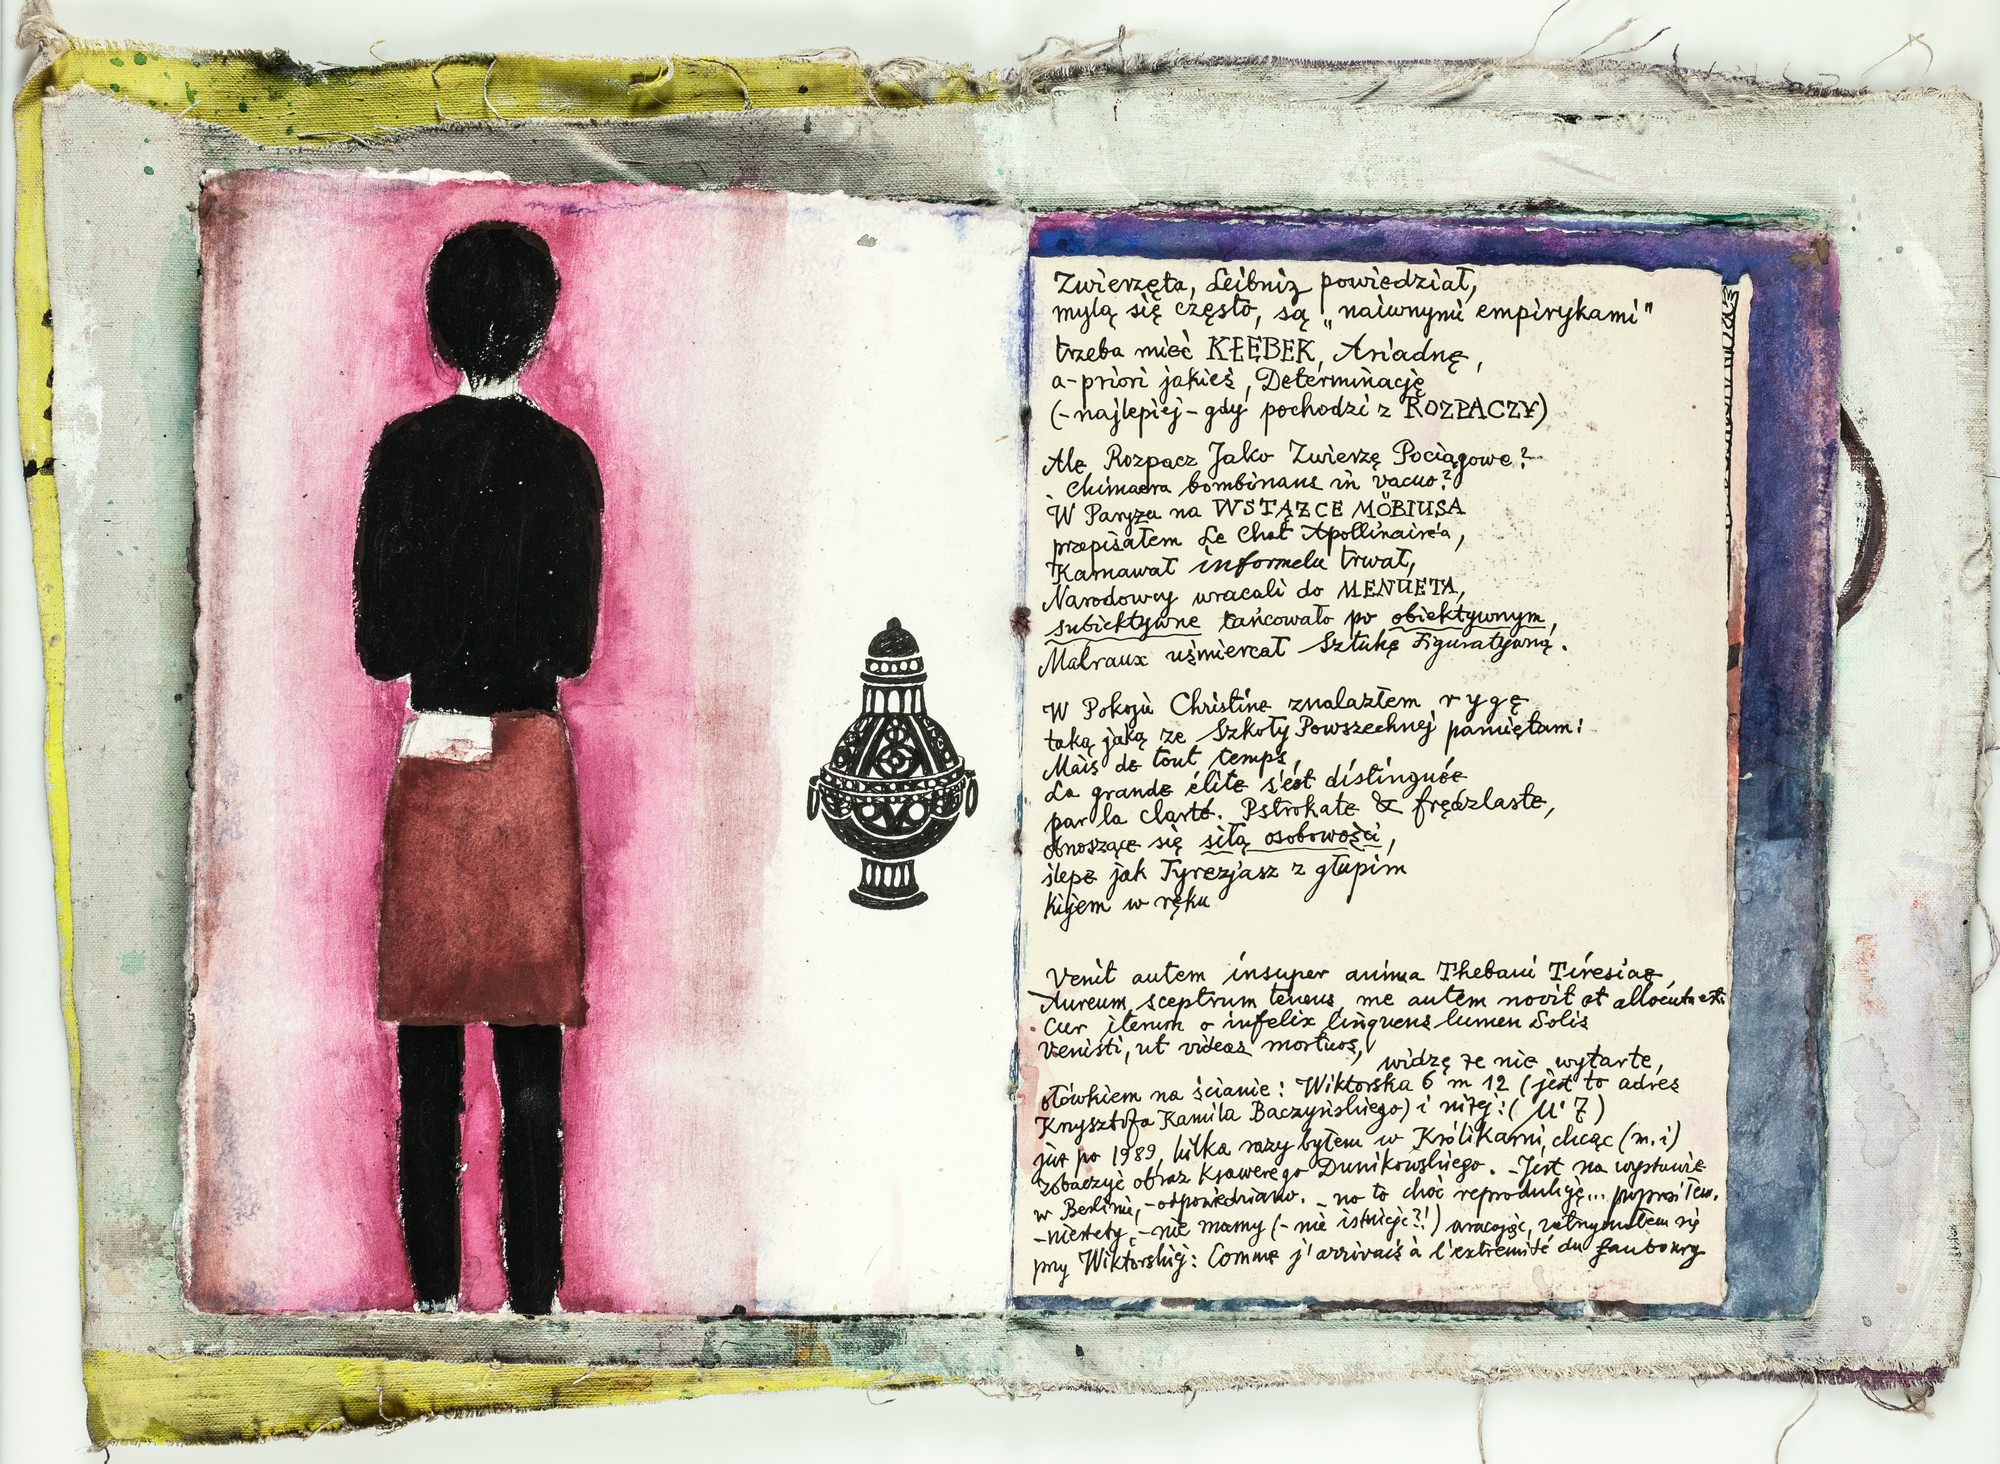 Zwierzęta, Leibniz powiedział,
mylą się często, są „naiwnymi empirykami"
trzeba mieć KŁĘBEK, Ariadnę,
a-priori jakieś, Determinację
(-najlepiej-gdy pochodzi z ROZPACZY)
Ale, Rozpacz Jako Zwierzę Pociągowe?
Chimaera bombinans in vacuo?
W Paryżu na WSTĄŻCE MÖBIUSA
przepisałem Le Chat Apollinaire'a,
Karnawał informelu trwał,
Narodowcy wracali do MENUETA,
subiektywne tańcowało po obiektywnym,
Malraux uśmiercał Sztukę Figuratywną.
W Pokoju Christine znalazłem rygę
taką jaką ze Szkoły Powszechnej pamiętam:
Mais de tout temps,
La grande élite s'est distinguée
par la clarté. Pstrokate & frędzlaste,
obnoszące się siłą osobowości,
ślepe jak Tyrezjasz z głupim
kijem w ręku
Venit autem insuper anima Thebani Tiresiae,
Aureum sceptrum tenens, me autem novit et allocuta est:
Cur iterum o infelix linquens lumen Solis
Venisti, ut videas mortuos,
widzę że nie wytarte,
ołówkiem na ścianie: Wiktorska 6 m 12 (jest to adres
Krzysztofa Kamila Baczyńskiego) i niżej: (
już po 1989, kilka razy byłem w Królikarni, chcąc (m.i)
zobaczyć obraz Ksawerego Dunikowskiego. -Jest na wystawie
w Berlinie, -odpowiedziano. - no to choć reprodukcję... poprosiłem.
-niestety, -nie mamy (-nie istnieje?!) wracając, zatrzymałem się
przy Wiktorskiej: Comme j'arrivais à l'extremité du faubourg